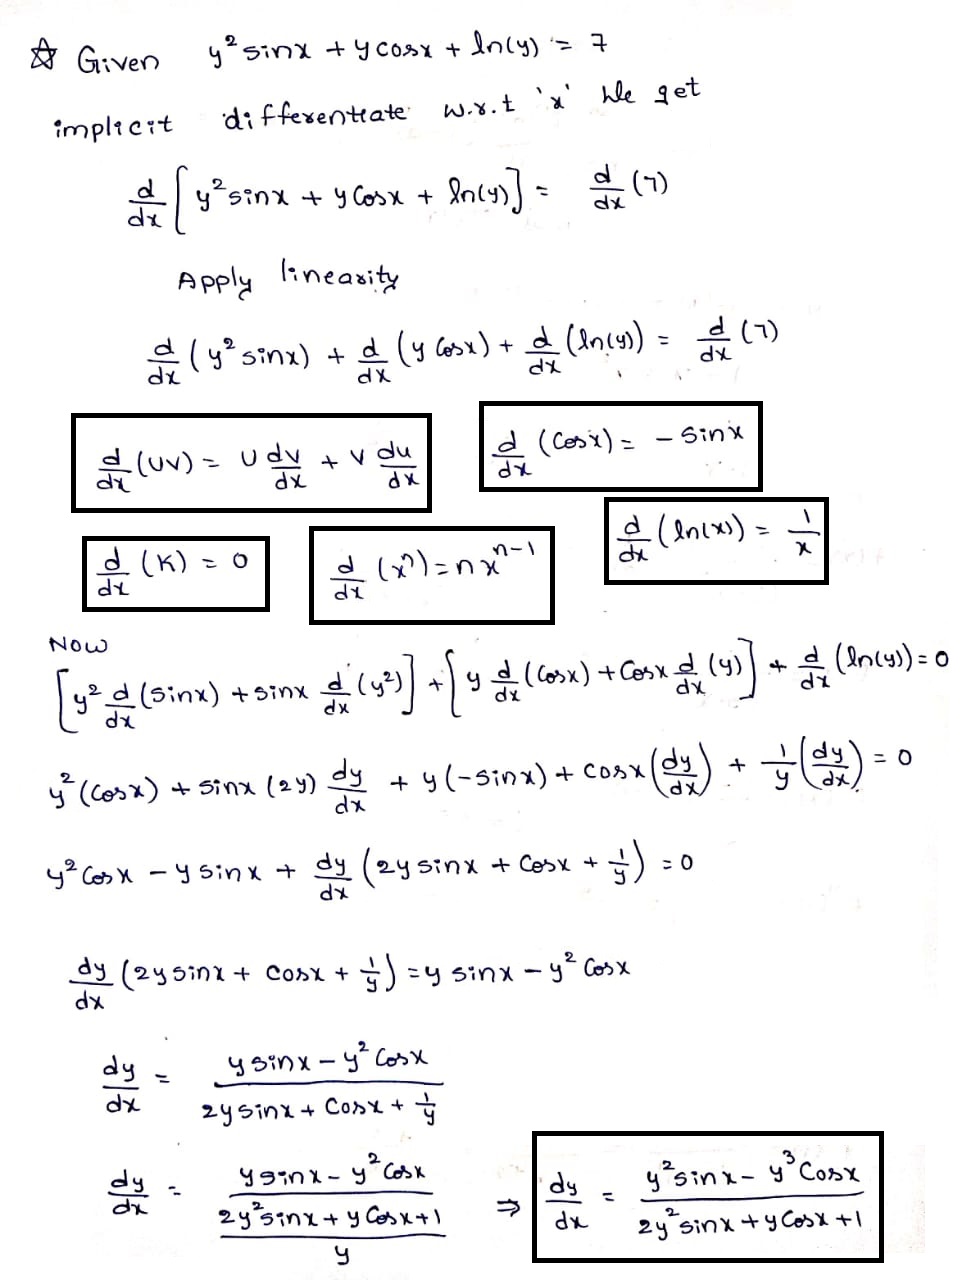 ☆ Given y² sinx + y cosx + ln(y) = 7
implicit differentiate w.r.t 'x' We get
d/dx [y² sinx + y cosx + ln(y)] = d/dx (7)
Apply linearity
d/dx (y² sinx) + d/dx (y cosx) + d/dx (ln(y)) = d/dx (7)
d/dx (UV) = U dv/dx + V du/dx
d/dx (cosx) = - sinx
d/dx (ln(x)) = 1/x
d/dx (K) = 0
d/dx (xⁿ) = n xⁿ⁻¹
Now
[y² d/dx (sinx) + sinx d/dx (y²)] + [y d/dx (cosx) + cosx d/dx (y)] + d/dx (ln(y)) = 0
y² (cosx) + sinx (2y) dy/dx + y(-sinx) + cosx (dy/dx) + 1/y (dy/dx) = 0
y² cosx - y sinx + dy/dx (2y sinx + cosx + 1/y) = 0
dy/dx (2y sinx + cosx + 1/y) = y sinx - y² cosx
dy/dx = (y sinx - y² cosx)/(2y sinx + cosx + 1/y)
dy/dx = (y sinx - y² cosx)/((2y² sinx + y cosx + 1)/y) ⇒ dy/dx = (y² sinx - y³ cosx)/(2y² sinx + y cosx + 1)